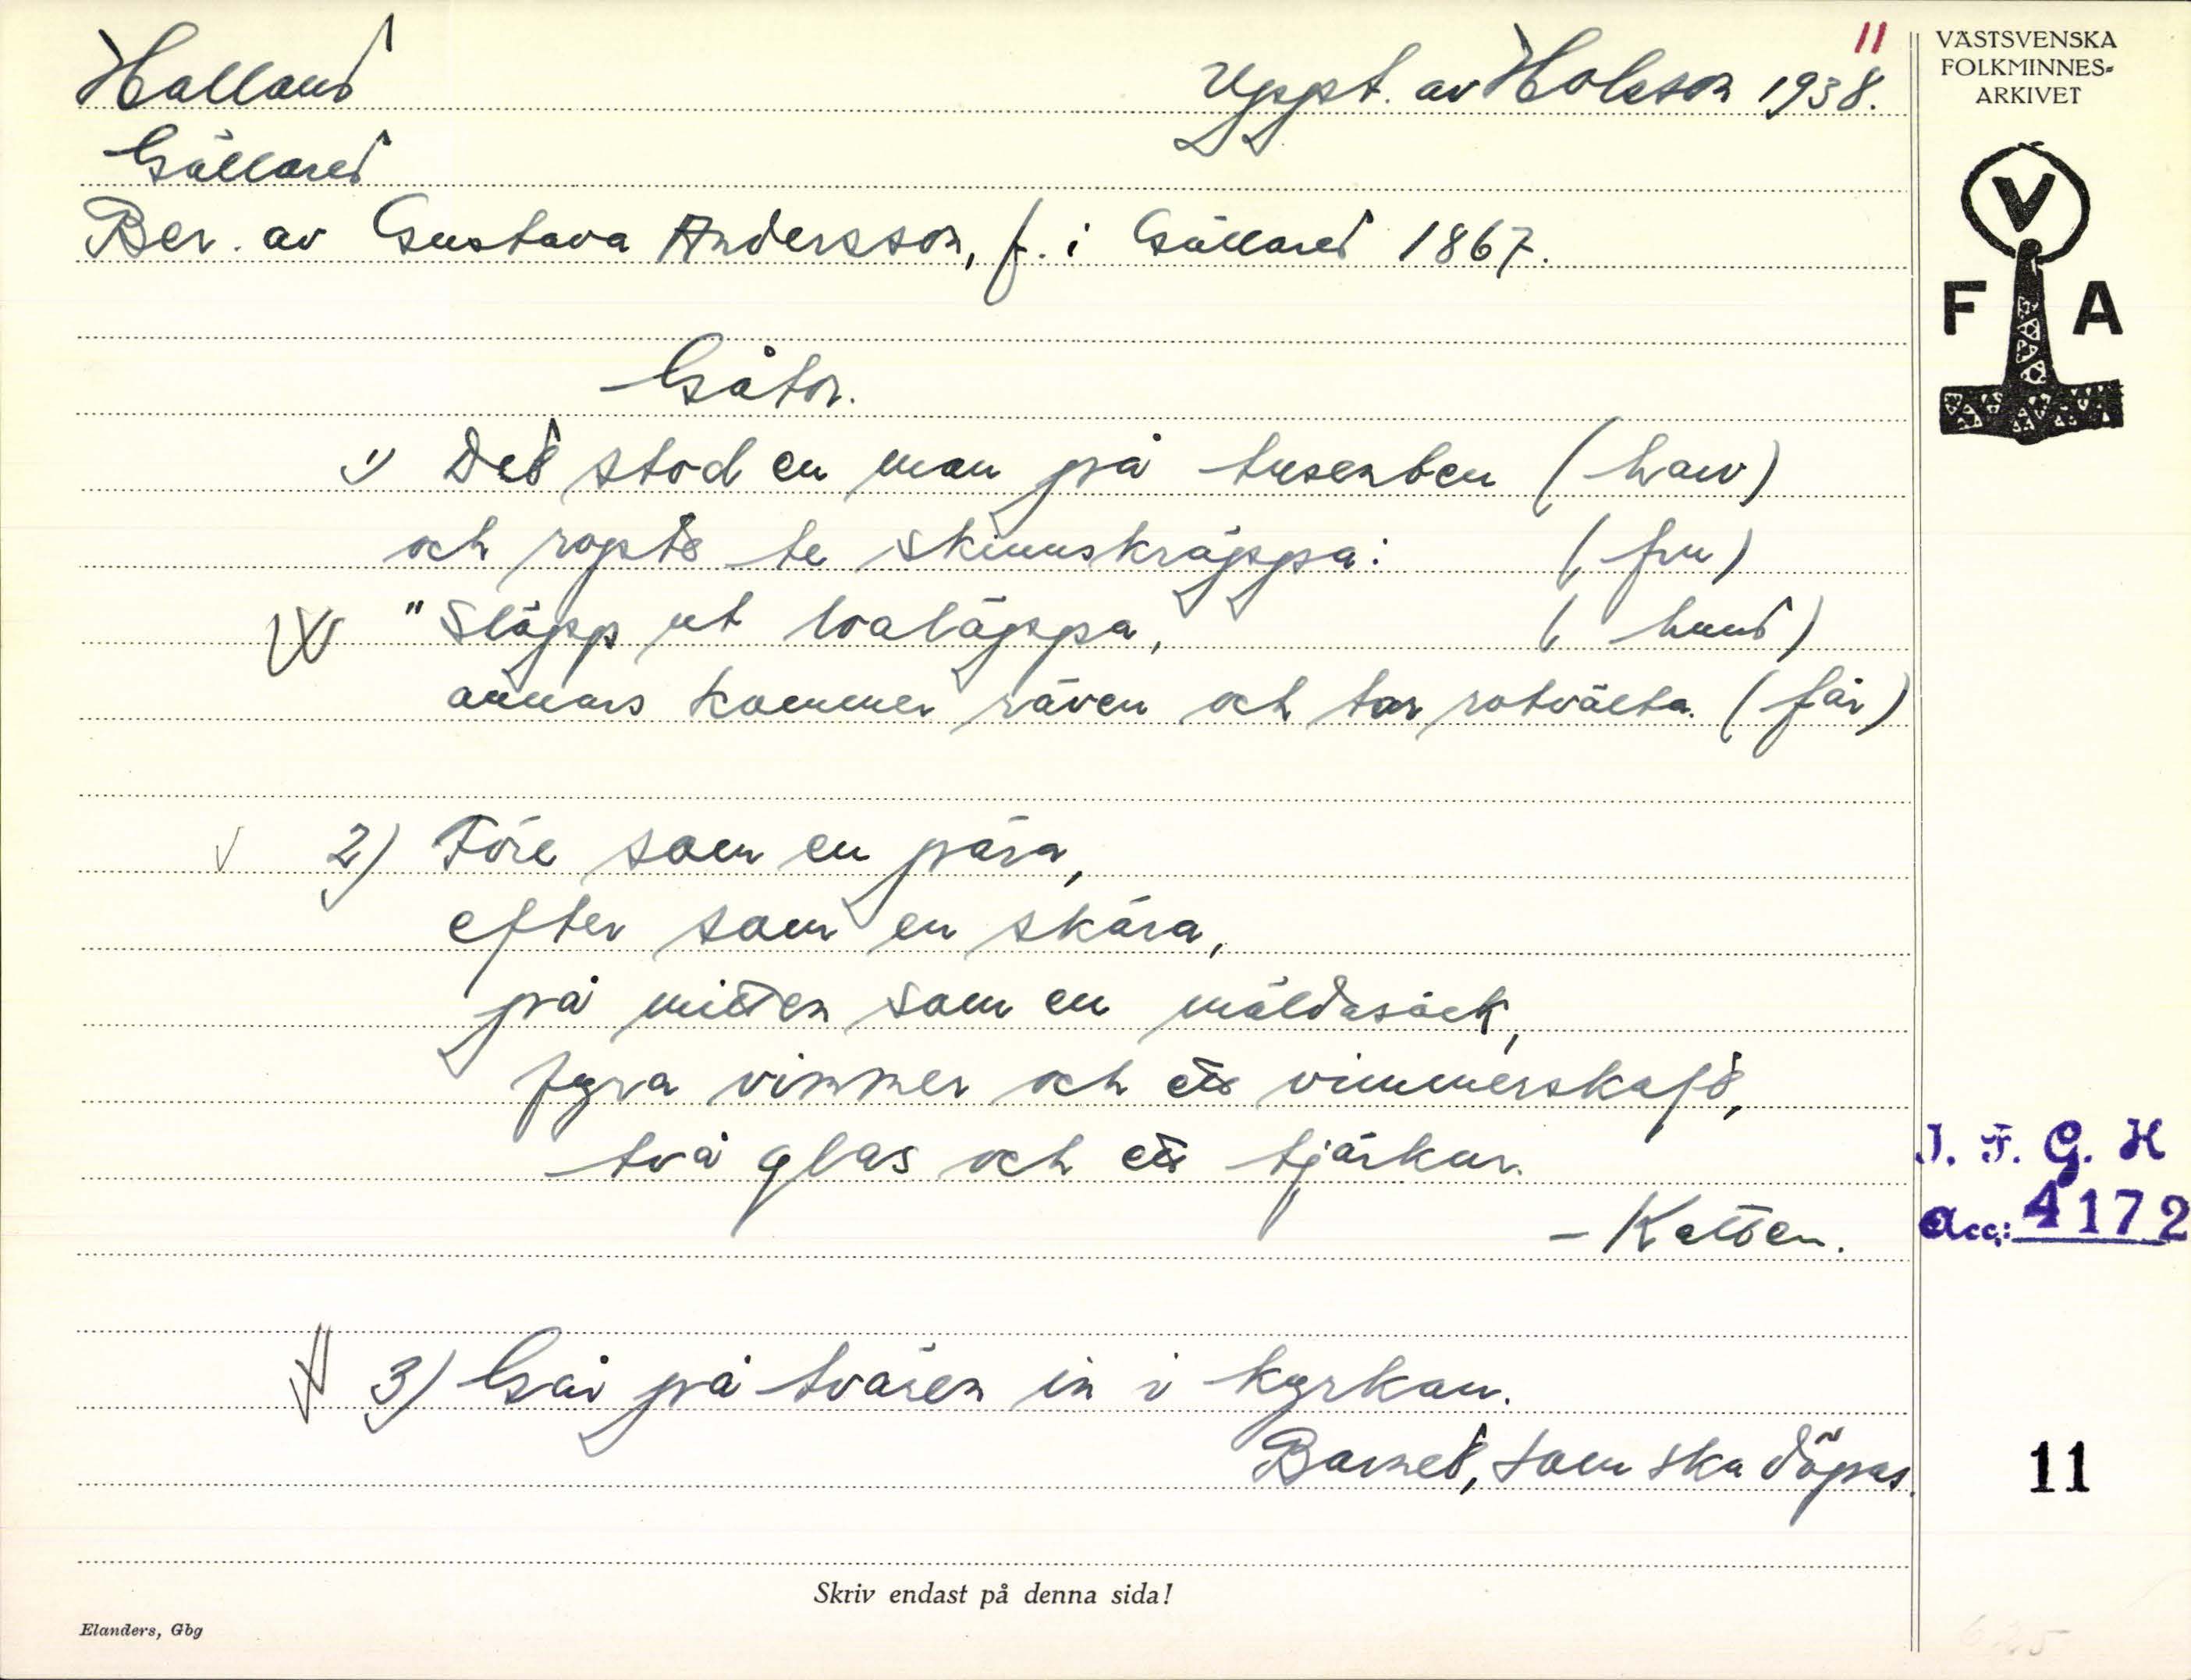 11
Halland
Uppt. av Holsson 1938.
Gällared
Ber. av Gustava Andersson, f. i Gällared 1867.
Gåtor.
1) Det stod en man på tusenben (harv)
och ropte te skinnskräppa: (fru)
"Släpp ut loaläppa, (hund)
annars kommer räven och tar rotvälta. (får)
2) Före som en pära,
efter som en skära,
på mitten som en mäldasäck,
fyra vimmer och ett vimmerskaft,
två glas och ett tjärkar.
- Katten.
3) Går på tvären in i kyrkan.
Barnet, som ska döpas.
Skriv endast på denna sida!
Elanders, Gbg
VÄSTSVENSKA
FOLKMINNES-
ARKIVET
V
F A
I. F. G. H
Acc: 4172
11
625